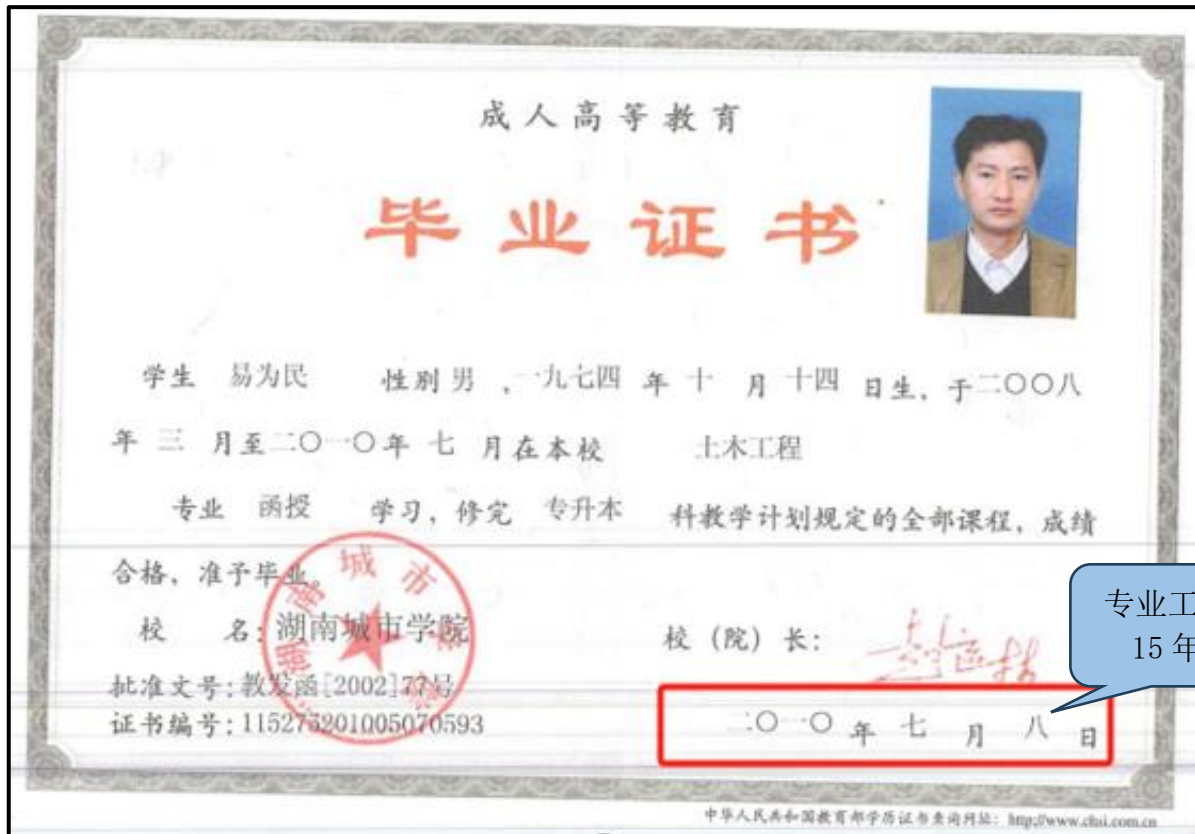 成人高等教育
毕业证书
学生 易为民 性别 男 ，一九七四 年 十 月 十四 日生，于二〇〇八
年 三 月至二〇一〇年 七 月在本校 土木工程
专业 函授 学习，修完 专升本 科教学计划规定的全部课程，成绩
合格，准予毕业。
湖南城市学院
校 名：湖南城市学院
校（院）长：
批准文号：教发函[2002]77号
证书编号：115275201005070593
二〇一〇 年 七 月 八 日
专业工
15 年
中华人民共和国教育部学历证书查询网址：http://www.chsi.com.cn